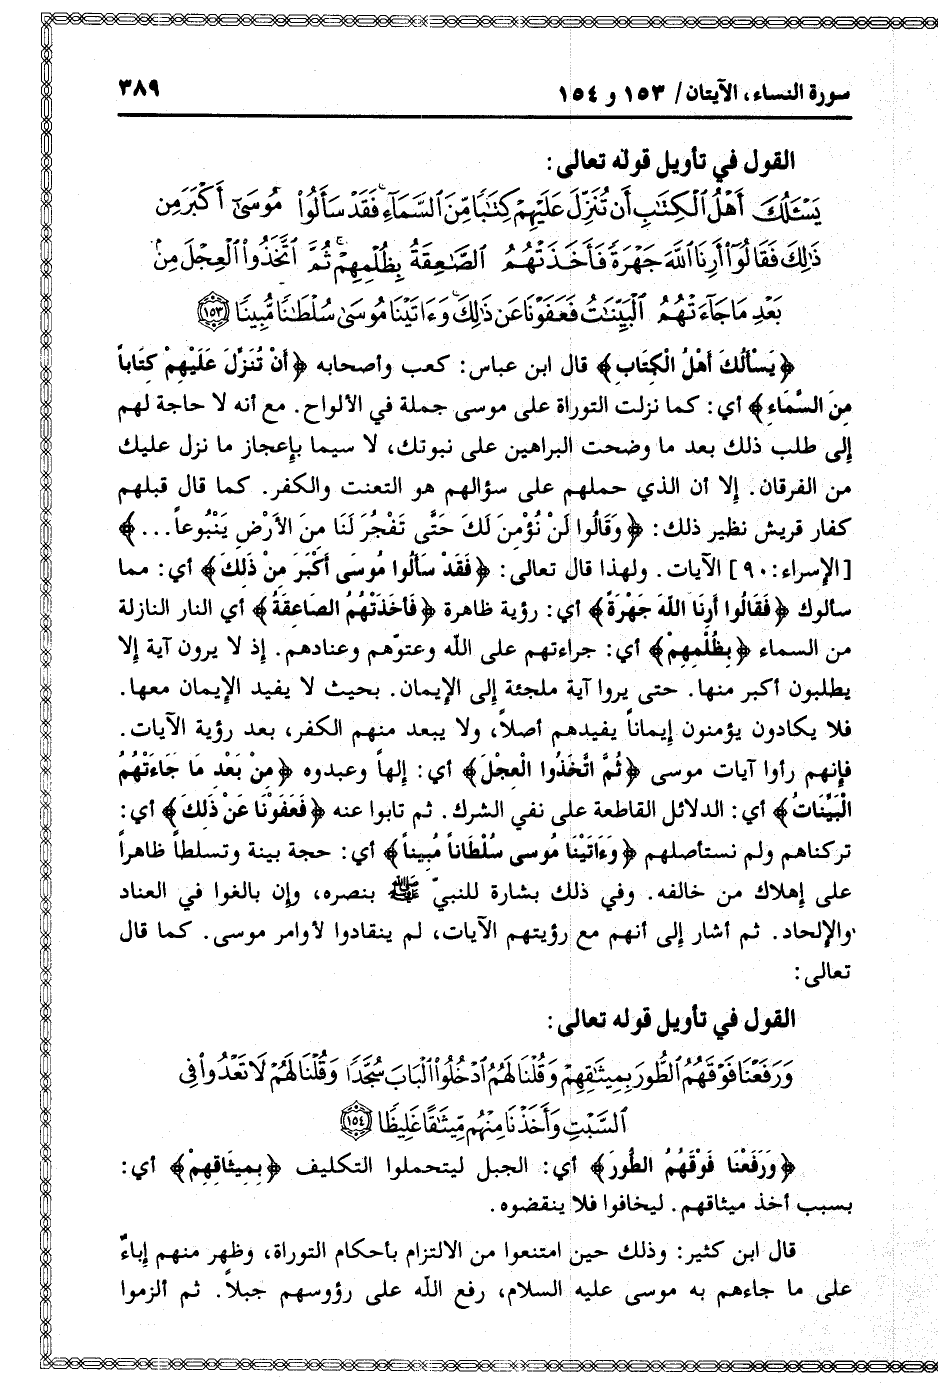 سورة النساء، الآيتان/ ١٥٣ و ١٥٤ ٣٨٩
القول في تأويل قوله تعالى:
يَسْـَٔلُكَ أَهْلُ ٱلْكِتَٰبِ أَن تُنَزِّلَ عَلَيْهِمْ كِتَٰبًا مِّنَ ٱلسَّمَآءِ ۚ فَقَدْ سَأَلُوا۟ مُوسَىٰٓ أَكْبَرَ مِن
ذَٰلِكَ فَقَالُوٓا۟ أَرِنَا ٱللَّهَ جَهْرَةً فَأَخَذَتْهُمُ ٱلصَّٰعِقَةُ بِظُلْمِهِمْ ۚ ثُمَّ ٱتَّخَذُوا۟ ٱلْعِجْلَ مِنۢ
بَعْدِ مَا جَآءَتْهُمُ ٱلْبَيِّنَٰتُ فَعَفَوْنَا عَن ذَٰلِكَ ۚ وَءَاتَيْنَا مُوسَىٰ سُلْطَٰنًا مُّبِينًا ١٥٣
﴿يَسْأَلُكَ أَهْلُ الْكِتَابِ﴾ قال ابن عباس: كعب وأصحابه ﴿أَنْ تُنَزِّلَ عَلَيْهِمْ كِتَاباً
مِنَ السَّمَاءِ﴾ أي: كما نزلت التوراة على موسى جملة في الألواح. مع أنه لا حاجة لهم
إلى طلب ذلك بعد ما وضحت البراهين على نبوتك، لا سيما بإعجاز ما نزل عليك
من الفرقان. إلا أن الذي حملهم على سؤالهم هو التعنت والكفر. كما قال قبلهم
كفار قريش نظير ذلك: ﴿وَقَالُوا لَنْ نُؤْمِنَ لَكَ حَتَّى تَفْجُرَ لَنَا مِنَ الأَرْضِ يَنْبُوعاً...﴾
[الإسراء: ٩٠] الآيات. ولهذا قال تعالى: ﴿فَقَدْ سَأَلُوا مُوسَى أَكْبَرَ مِنْ ذَلِكَ﴾ أي: مما
سألوك ﴿فَقَالُوا أَرِنَا اللَّهَ جَهْرَةً﴾ أي: رؤية ظاهرة ﴿فَأَخَذَتْهُمُ الصَّاعِقَةُ﴾ أي النار النازلة
من السماء ﴿بِظُلْمِهِمْ﴾ أي: جراءتهم على اللّه وعتوّهم وعنادهم. إذ لا يرون آية إلا
يطلبون أكبر منها. حتى يروا آية ملجئة إلى الإيمان. بحيث لا يفيد الإيمان معها.
فلا يكادون يؤمنون إيماناً يفيدهم أصلاً، ولا يبعد منهم الكفر، بعد رؤية الآيات.
فإنهم رأوا آيات موسى ﴿ثُمَّ اتَّخَذُوا الْعِجْلَ﴾ أي: إلهاً وعبدوه ﴿مِنْ بَعْدِ مَا جَاءَتْهُمُ
الْبَيِّنَاتُ﴾ أي: الدلائل القاطعة على نفي الشرك. ثم تابوا عنه ﴿فَعَفَوْنَا عَنْ ذَلِكَ﴾ أي:
تركناهم ولم نستأصلهم ﴿وَءَاتَيْنَا مُوسى سُلْطَاناً مُبِيناً﴾ أي: حجة بينة وتسلطاً ظاهراً
على إهلاك من خالفه. وفي ذلك بشارة للنبيّ ﷺ بنصره، وإن بالغوا في العناد
والإلحاد. ثم أشار إلى أنهم مع رؤيتهم الآيات، لم ينقادوا لأوامر موسى. كما قال
تعالى:
القول في تأويل قوله تعالى:
وَرَفَعْنَا فَوْقَهُمُ ٱلطُّورَ بِمِيثَٰقِهِمْ وَقُلْنَا لَهُمُ ٱدْخُلُوا۟ ٱلْبَابَ سُجَّدًا وَقُلْنَا لَهُمْ لَا تَعْدُوا۟ فِى
ٱلسَّبْتِ وَأَخَذْنَا مِنْهُم مِّيثَٰقًا غَلِيظًا ١٥٤
﴿وَرَفَعْنَا فَوْقَهُمُ الطُّورَ﴾ أي: الجبل ليتحملوا التكليف ﴿بِمِيثَاقِهِمْ﴾ أي:
بسبب أخذ ميثاقهم. ليخافوا فلا ينقضوه.
قال ابن كثير: وذلك حين امتنعوا من الالتزام بأحكام التوراة، وظهر منهم إباءٌ
على ما جاءهم به موسى عليه السلام، رفع اللّه على رؤوسهم جبلاً. ثم ألزموا